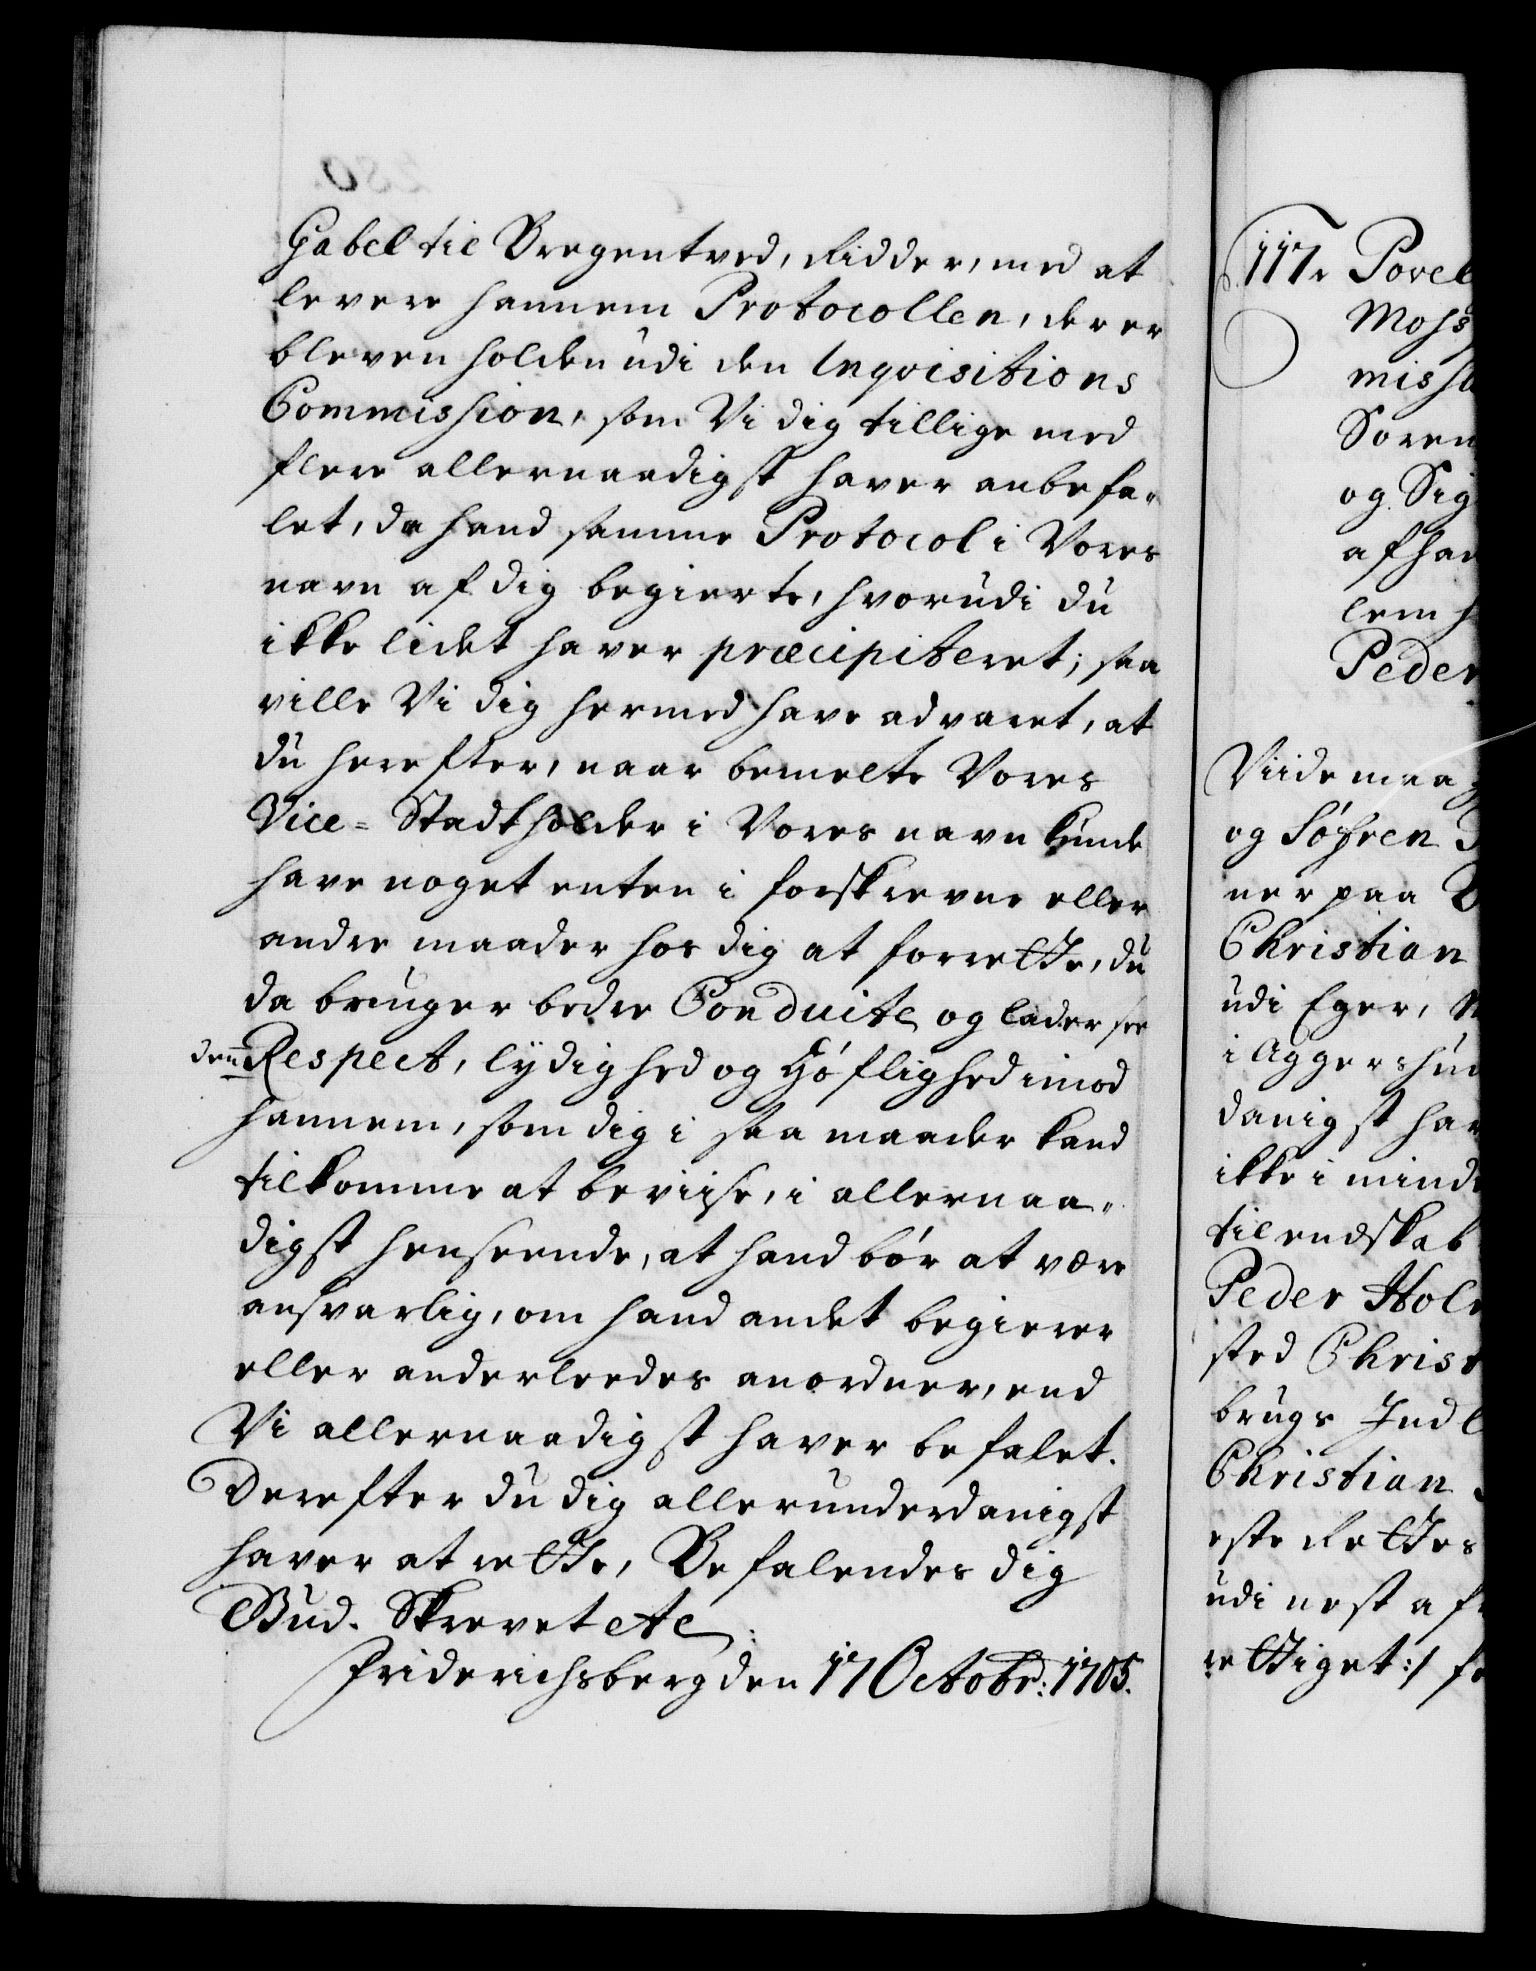 Gabel til Bregentved, Ridder, med at
levere hannem Protocollen, der er
bleven holden udi den Inqvisitions
Commission, som Vi dig tillige med
flere allernaadigst haver anbefa-
let, da hand samme Protocol i Vores
navn af dig begierte, hvorudi du
ikke lidet haver præcipiteret; saa
ville Vi dig hermed have advaret, at
du herefter, naar bemelte Vores
Vice-Stadtholder i Vores navn kunde
have noget enten i forskrevne eller
andre maader hos dig at forrette, du
da bruger bedre Conduite og lader see
den Respect, lydighed og Høflighed imod
hannem, som dig i saa maader kand
tilkomme at beviise, i allernaa-
digst henseende, at hand bør at være
ansvarlig, om hand andet begierer
eller anderleedes anordner, end
Vi allernaadigst haver befalet.
Derefter du dig allerunderdanigst
haver at rette, Befalendes dig
Gud. Skrevet etc.
Friderichsberg den 17 Octobr: 1705.
117. Povel
Moss
miss
Søren
og Sig
afhan
lem h
Peder
Viide maa
og Søfren
ner paa
Christian
udi Eger,
i Aggershuu
danigst hav
ikke i mind
til endskab
Peder Hol
sted Christ
brugs Ind
Christian
este Rettes
udi nest af
rettiget:/ fo